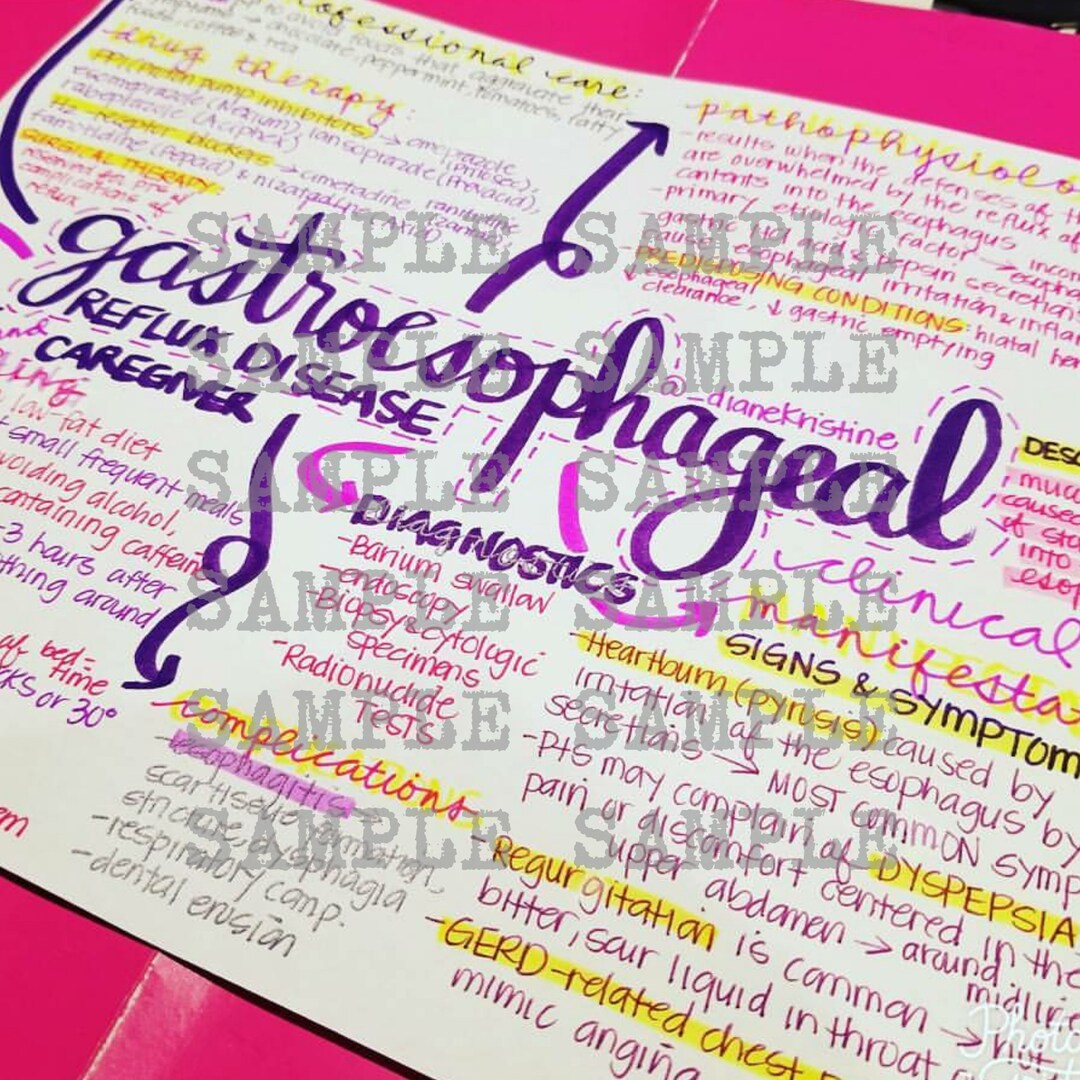 professional care:
to avoid foods that aggravate their
symptoms → chocolate, peppermint, tomatoes, fatty
foods, coffee & tea
drug therapy:
PPI (proton pump inhibitors) → omeprazole (Prilosec),
esomeprazole (Nexium), lansoprazole (Prevacid),
rabeprazole (Aciphex)
receptor blockers → cimetadine, ranitidine
famotidine (Pepcid) & nizatadine (Axid)
SURGICAL THERAPY:
reserved for pts
complications of
reflux
pathophysiolo
- results when the defenses of th
are overwhelmed by the reflux of
contents into the esophagus
- primary etiologic factor → incom
esopha
- gastric HCl acid & pepsin secretions
cause esophageal irritation & inflam
PREDISPOSING CONDITIONS: hiatal he
↓ esophageal
clearance, ↓ gastric emptying
gastroesophageal
REFLUX DISEASE
CAREGIVER
@_dianekristine
ing
low-fat diet
small frequent meals
avoiding alcohol,
containing caffeine
-3 hours after
thing around
of bed-
time
cks or 30°
em
DIAGNOSTICS
- Barium swallow
- endoscopy
- Biopsy & cytologic
specimens
- Radionuclide
Tests
DESC
caused
of sto
into
esop
clinical
manifesta
SIGNS & SYMPTOM
- Heartburn (pyrosis) caused by
irritation of the esophagus by
secretions → MOST common symp
- Pts may complain of DYSPEPSIA
pain or discomfort centered in the
upper abdomen → around midline
- Regurgitation is common → hot,
bitter, sour liquid in throat
- GERD-related chest
mimic angina
complications
- esophagitis →
scar tissue formation,
stricture, dysphagia
- respiratory comp.
- dental erosion
SAMPLE SAMPLE
SAMPLE SAMPLE
SAMPLE SAMPLE
SAMPLE SAMPLE
SAMPLE SAMPLE
SAMPLE SAMPLE
Photo